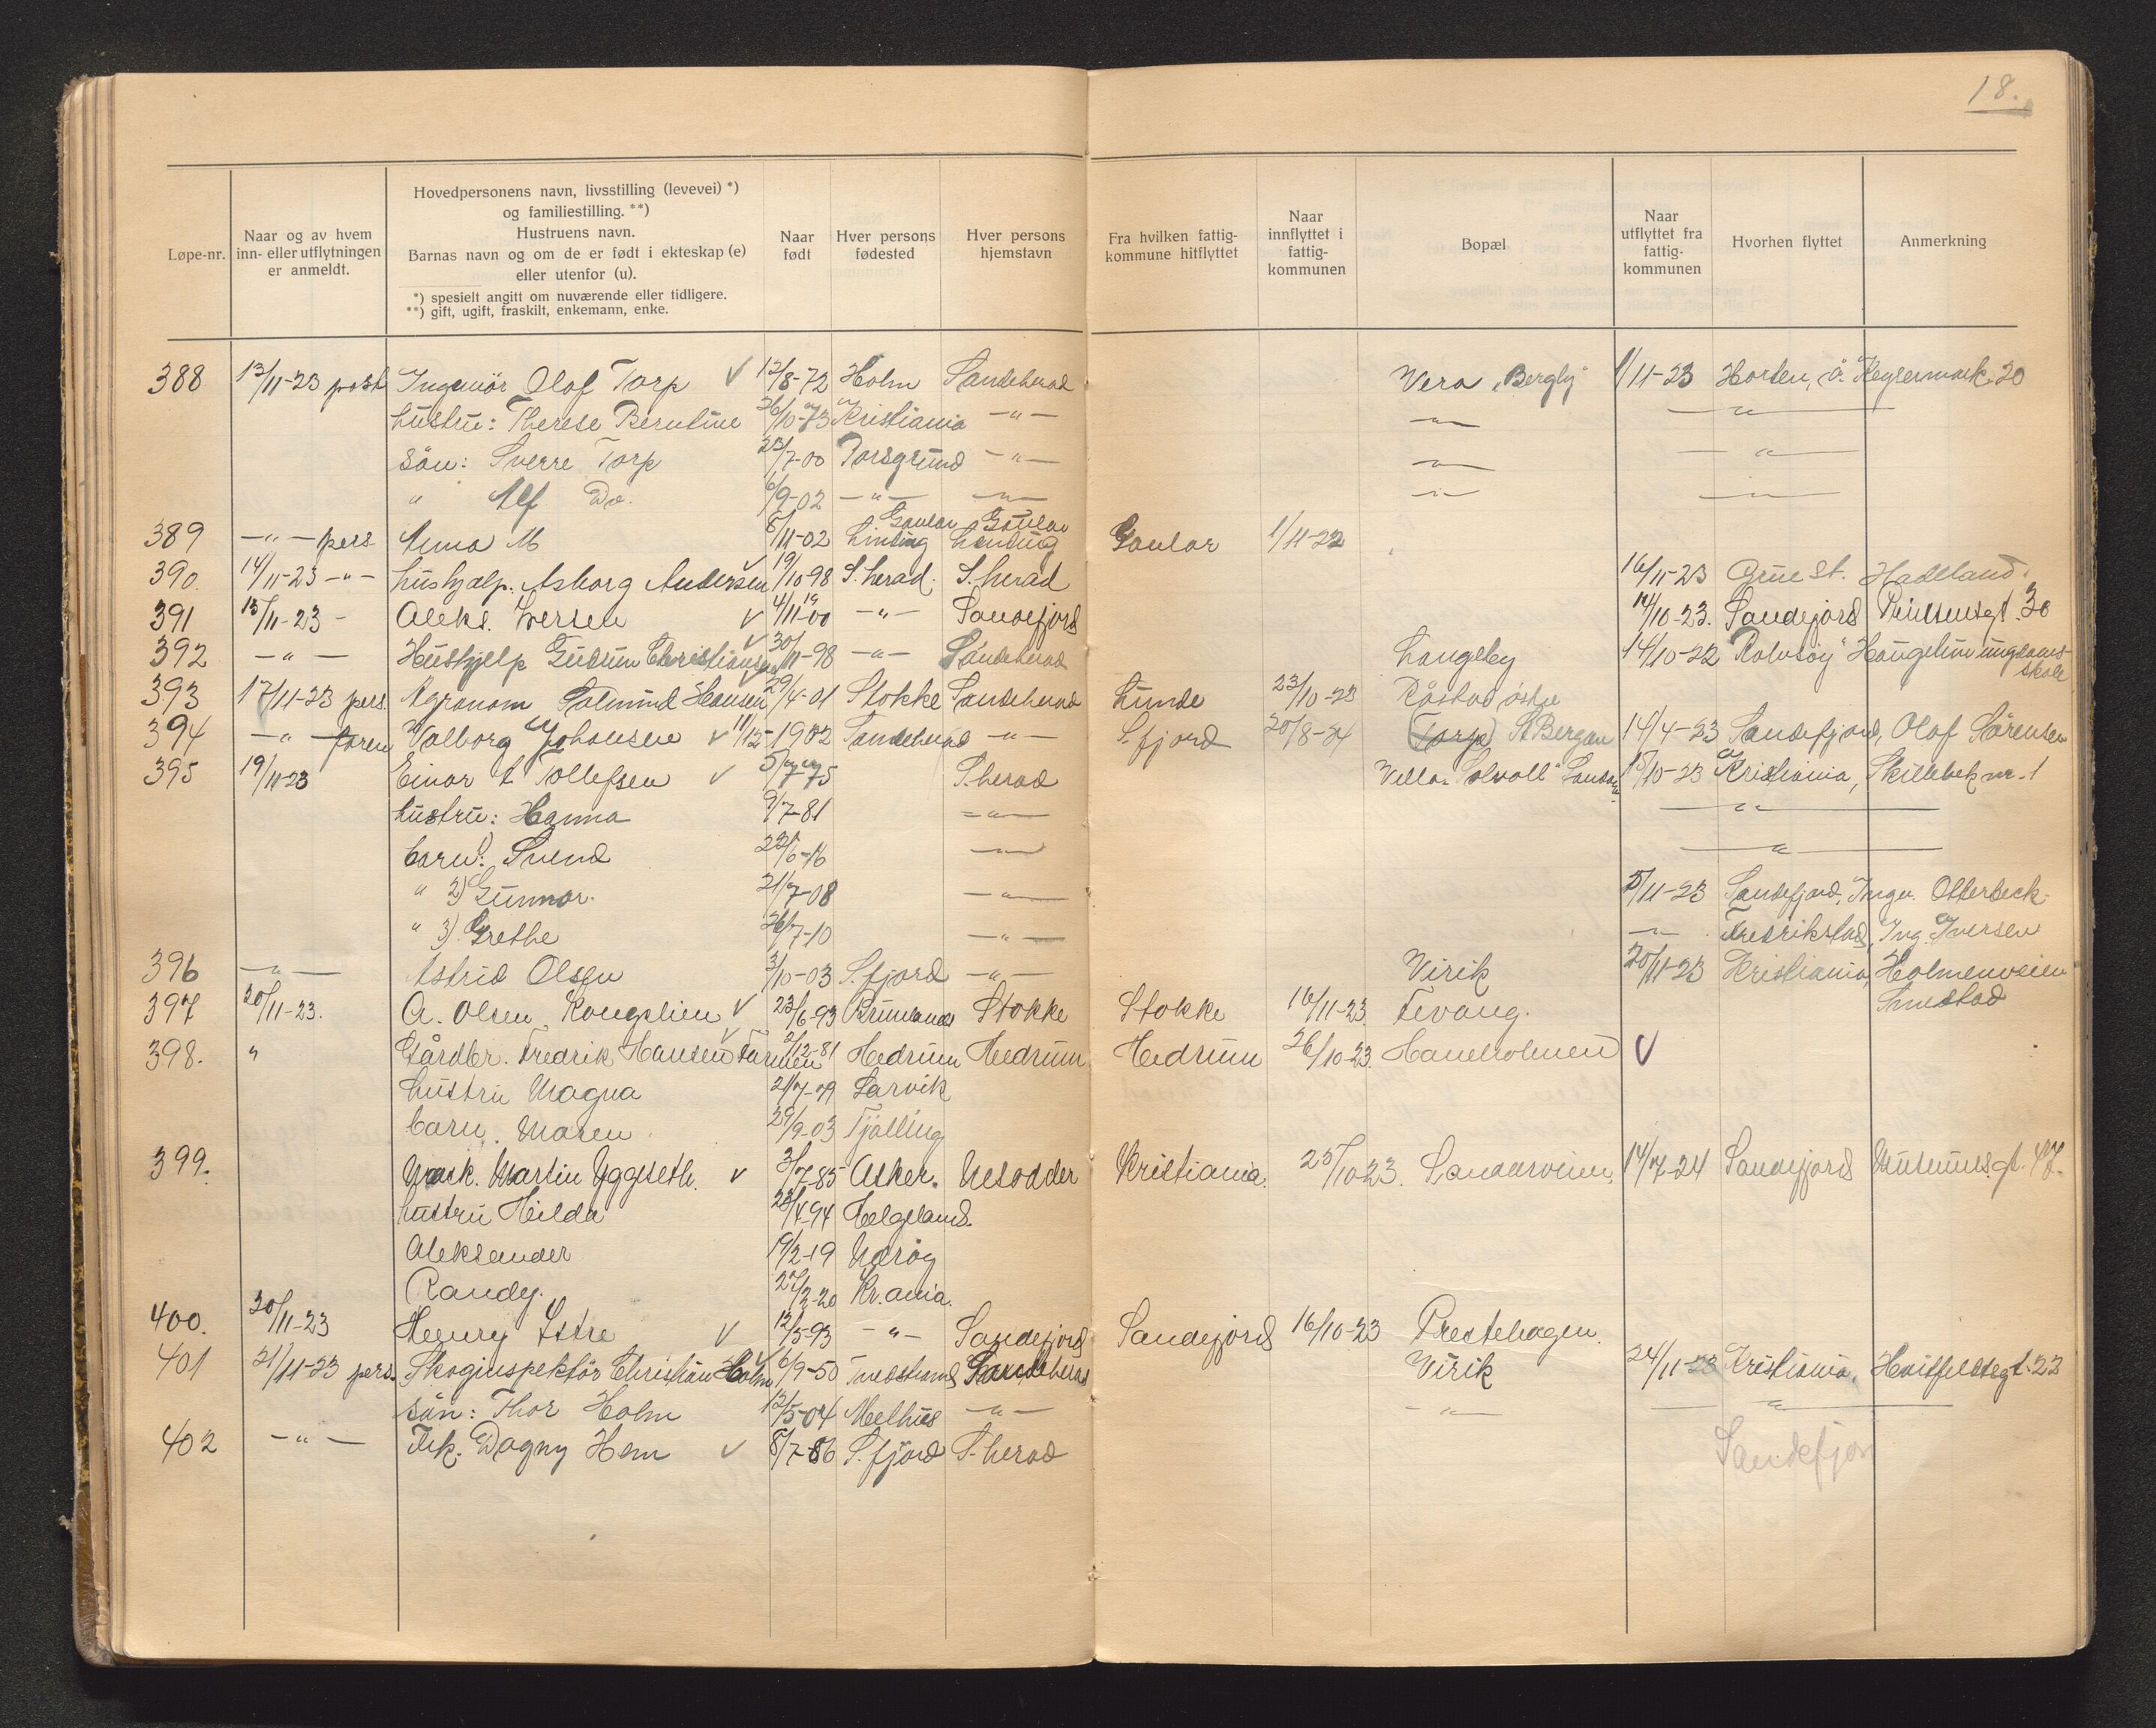 18.
Løpe-nr.
Naar og av hvem inn- eller utflytningen er anmeldt.
Hovedpersonens navn, livsstilling (levevei) *)
og familiestilling. **)
Hustruens navn.
Barnas navn og om de er født i ekteskap (e)
eller utenfor (u).
*) spesielt angitt om nuværende eller tidligere.
**) gift, ugift, fraskilt, enkemann, enke.
Naar født
Hver persons fødested
Hver persons hjemstavn
Fra hvilken fattig-kommune hitflyttet
Naar innflyttet i fattig-kommunen
Bopæl
Naar utflyttet fra fattig-kommunen
Hvorhen flyttet
Anmerkning
388 13/11-23 post Ingeniör Olaf Torp √ 12/8-72 Holm Sandeherad Vera "Bergly" 1/11-23 Horten, ö. Keysermark 20
hustru: Therese Berntine 26/10-73 Kristiania -"- -"- -"-
sön: Sverre Torp 23/7-00 Porsgrund -"- -"- -"-
" Alf Do. 6/9-02 -"- -"- -"- -"-
389 -"- pers Anna M 8/11-02 Gaular Gaular Gaular 1/11-22
390. 14/11-23 -"- hushjælp. Asborg Andersen √ 19/10-98 S.herad. S.herad 16/11-23 Grue st. Hadeland.
391 15/11-23 - Aleks. Iversen √ 4/11-00 -"- Sandefjord 14/10-23. Sandefjord 30
392 -"- Hushjelp Gudrun Christiansen √ 30/11-98 -"- Sandeherad Langeby 14/10-22 "Rolvsöy" Haugetun ungdoms-skole
393 17/11-23 pers. Agronom Salmund Hansen 29/4-01 Stokke Sandeherad Lunde 23/10-23 Råstad östre
394 -"- Valborg Johansen √ 11/12-1902 Sandeherad -"- S.fjord 20/8-24 (Torp) St Bergan 14/4-23 Sandefjord, Olaf Sörensen
395 19/11-23 Einar L Tollefsen √ 5/7-75 S.herad Villa "Solvoll" 15/10-23 Kristiania, Skillebek nr. 1
hustru: Hanna 9/7-81 -"- -"-
barn: 1) Svend 22/6-16 -"- -"-
" 2) Gunnar. 21/7-08 -"- 5/11-23 Sandefjord, Ingn. Otterbeck
" 3). Grethe 26/7-10 -"- -"- Fredrikstad, Ing. Iversen
396 -"- Astrid Olsen 3/10-03 S.fjord -"- Virik 20/11-23 Kristiania, Holmenveien Smestad
397 20/11-23. A. Olsen Kongslien √ 23/6-93 Brunlanes Stokke Stokke 16/11-23. Fevang.
398. " Gårdbr. Fredrik Hansen Farmen √ 2/12-81 Hedrum Hedrum Hedrum 26/10-23. Haneholmen √
hustru Magna 21/7-79 Larvik
barn. Maren 29/9-03 Tjölling
399. Mask. Martin Yggseth. √ 31/7-85 Asker. Nesodder Kristiania. 25/10-23. Sandarveien. 14/7-24 Sandefjord Museumsgt. 47.
hustru Hilda 28/4-94 Helgeland.
Aleksander 19/2-19 Næröy
Randy. 27/2-20 Kr.ania.
400. 20/11-23 Henry Istre √ 12/5-93 -"- Sandefjord Sandefjord 16/10-23 Prestehagen.
401 21/11-23 pers. Skoginspektör Christian Holm √ 6/9-50 Tvedestrand Sandeherad Virik 24/11-23 Kristiania, Huitfeldtsgt. 23
sön: Thor Holm 12/5-04 Melhus -"- -"- -"-
402 -"- Frk. Dagny Hem √ 8/7-86 S.fjord S.herad Sandefjor